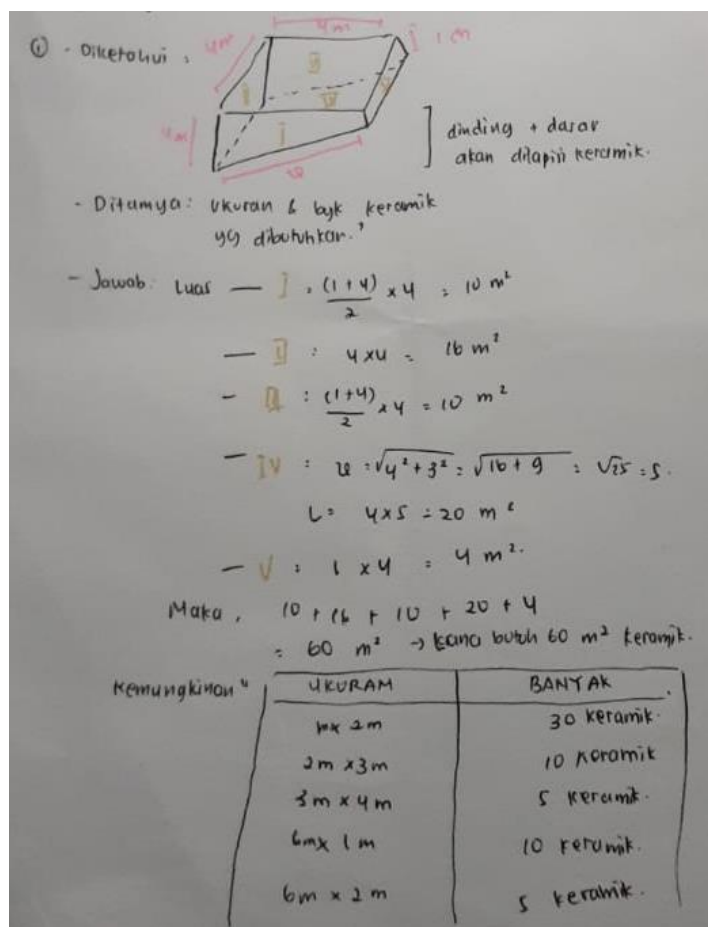 ① - Diketahui :
4m
4m
1 m
4m
II
I
III
IV
V
u
dinding + dasar
akan dilapisi keramik.
- Ditanya : Ukuran & byk keramik
yg dibutuhkan ?
- Jawab : Luas — I : (1+4)/2 x 4 = 10 m²
— II : 4x4 = 16 m²
- III : (1+4)/2 x 4 = 10 m²
- IV : u = √4²+3² = √16+9 = √25 = 5.
L = 4x5 = 20 m²
- V : 1 x 4 = 4 m².
Maka, 10 + 16 + 10 + 20 + 4
= 60 m² → butuh 60 m² keramik.
Kemungkinan"
UKURAN BANYAK
1m x 2m 30 keramik.
2m x 3m 10 keramik
3m x 4m 5 keramik.
6m x 1m 10 keramik.
6m x 2m 5 keramik.